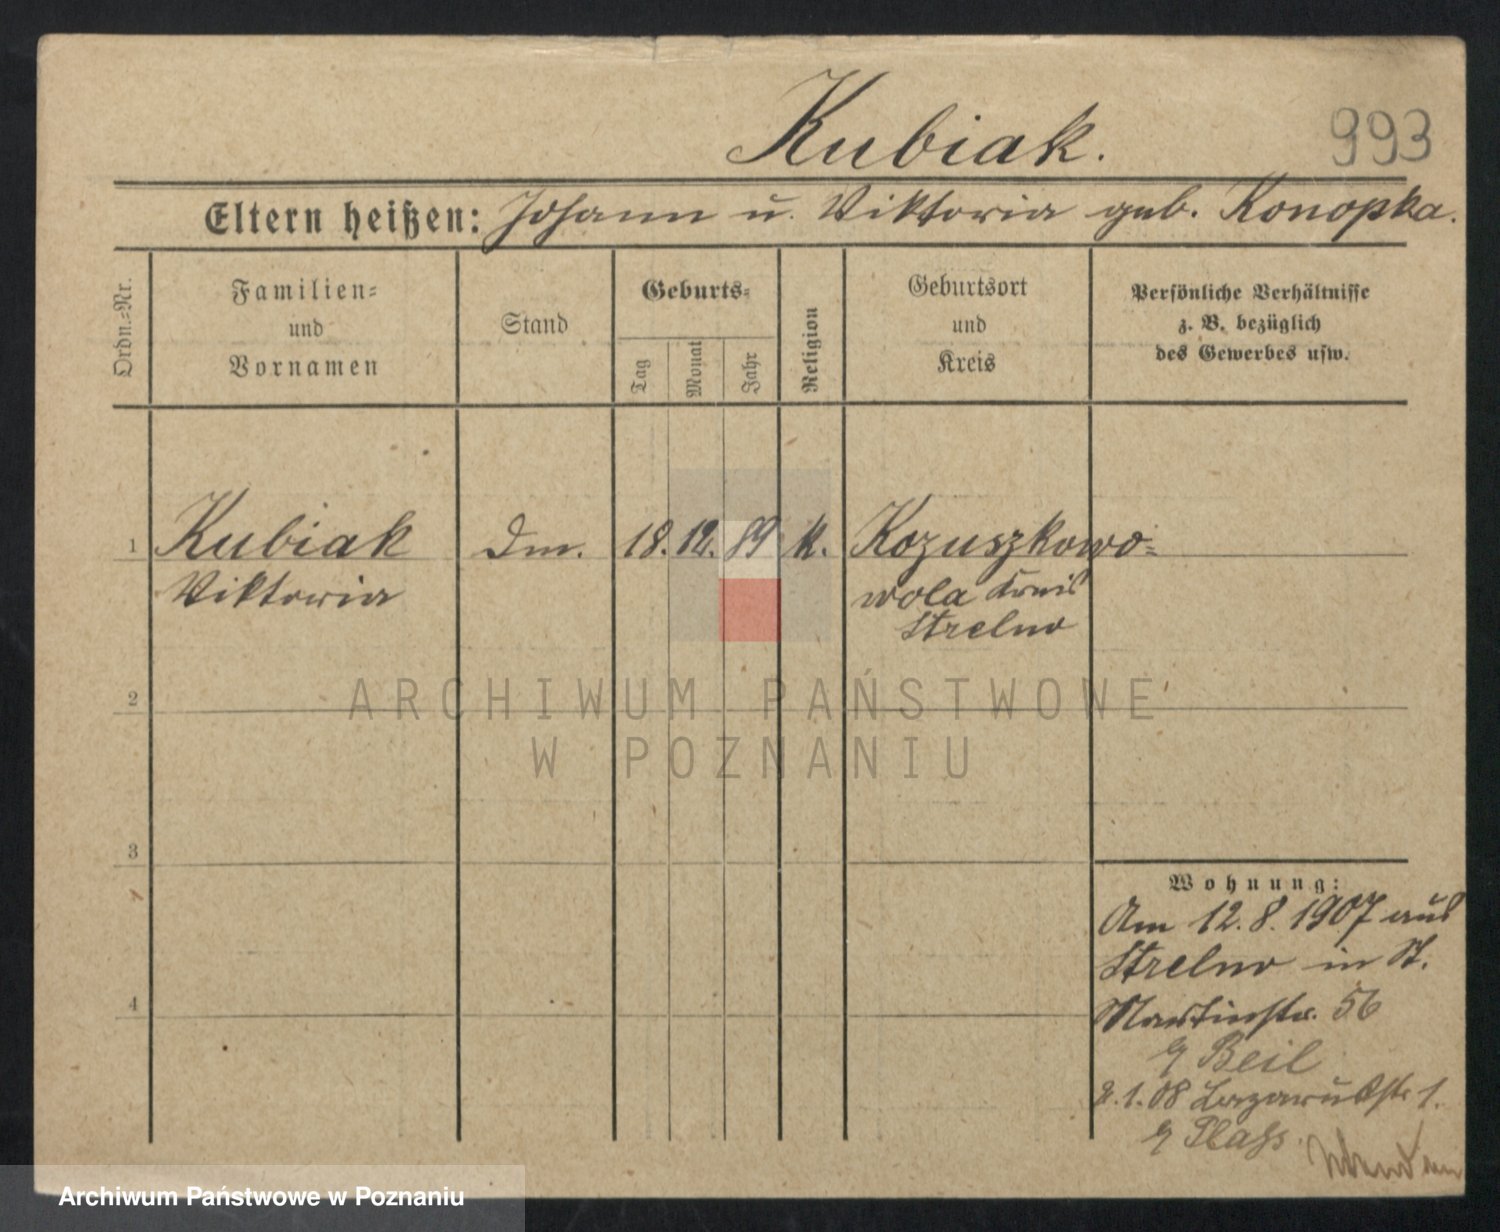 Kubiak.
993
Eltern heißen: Johann u. Viktoria geb. Konopka.
Ordn.=Nr.
Familien=
und
Vornamen
Stand
Geburts=
Tag
Monat
Jahr
Religion
Geburtsort
und
Kreis
Persönliche Verhältnisse
z. B. bezüglich
des Gewerbes usw.
1 Kubiak Dm. 18. 12. 89 k. Kozuszkowo=
Viktoria wola Kreis
Strelno
2
3
4
Wohnung:
Am 12. 8. 1907 aus
Strelno in St.
Martinstr. 56
Beil
2. 1. 08 Lazarusstr 1.
ARCHIWUM PAŃSTWOWE
W POZNANIU
Archiwum Państwowe w Poznaniu